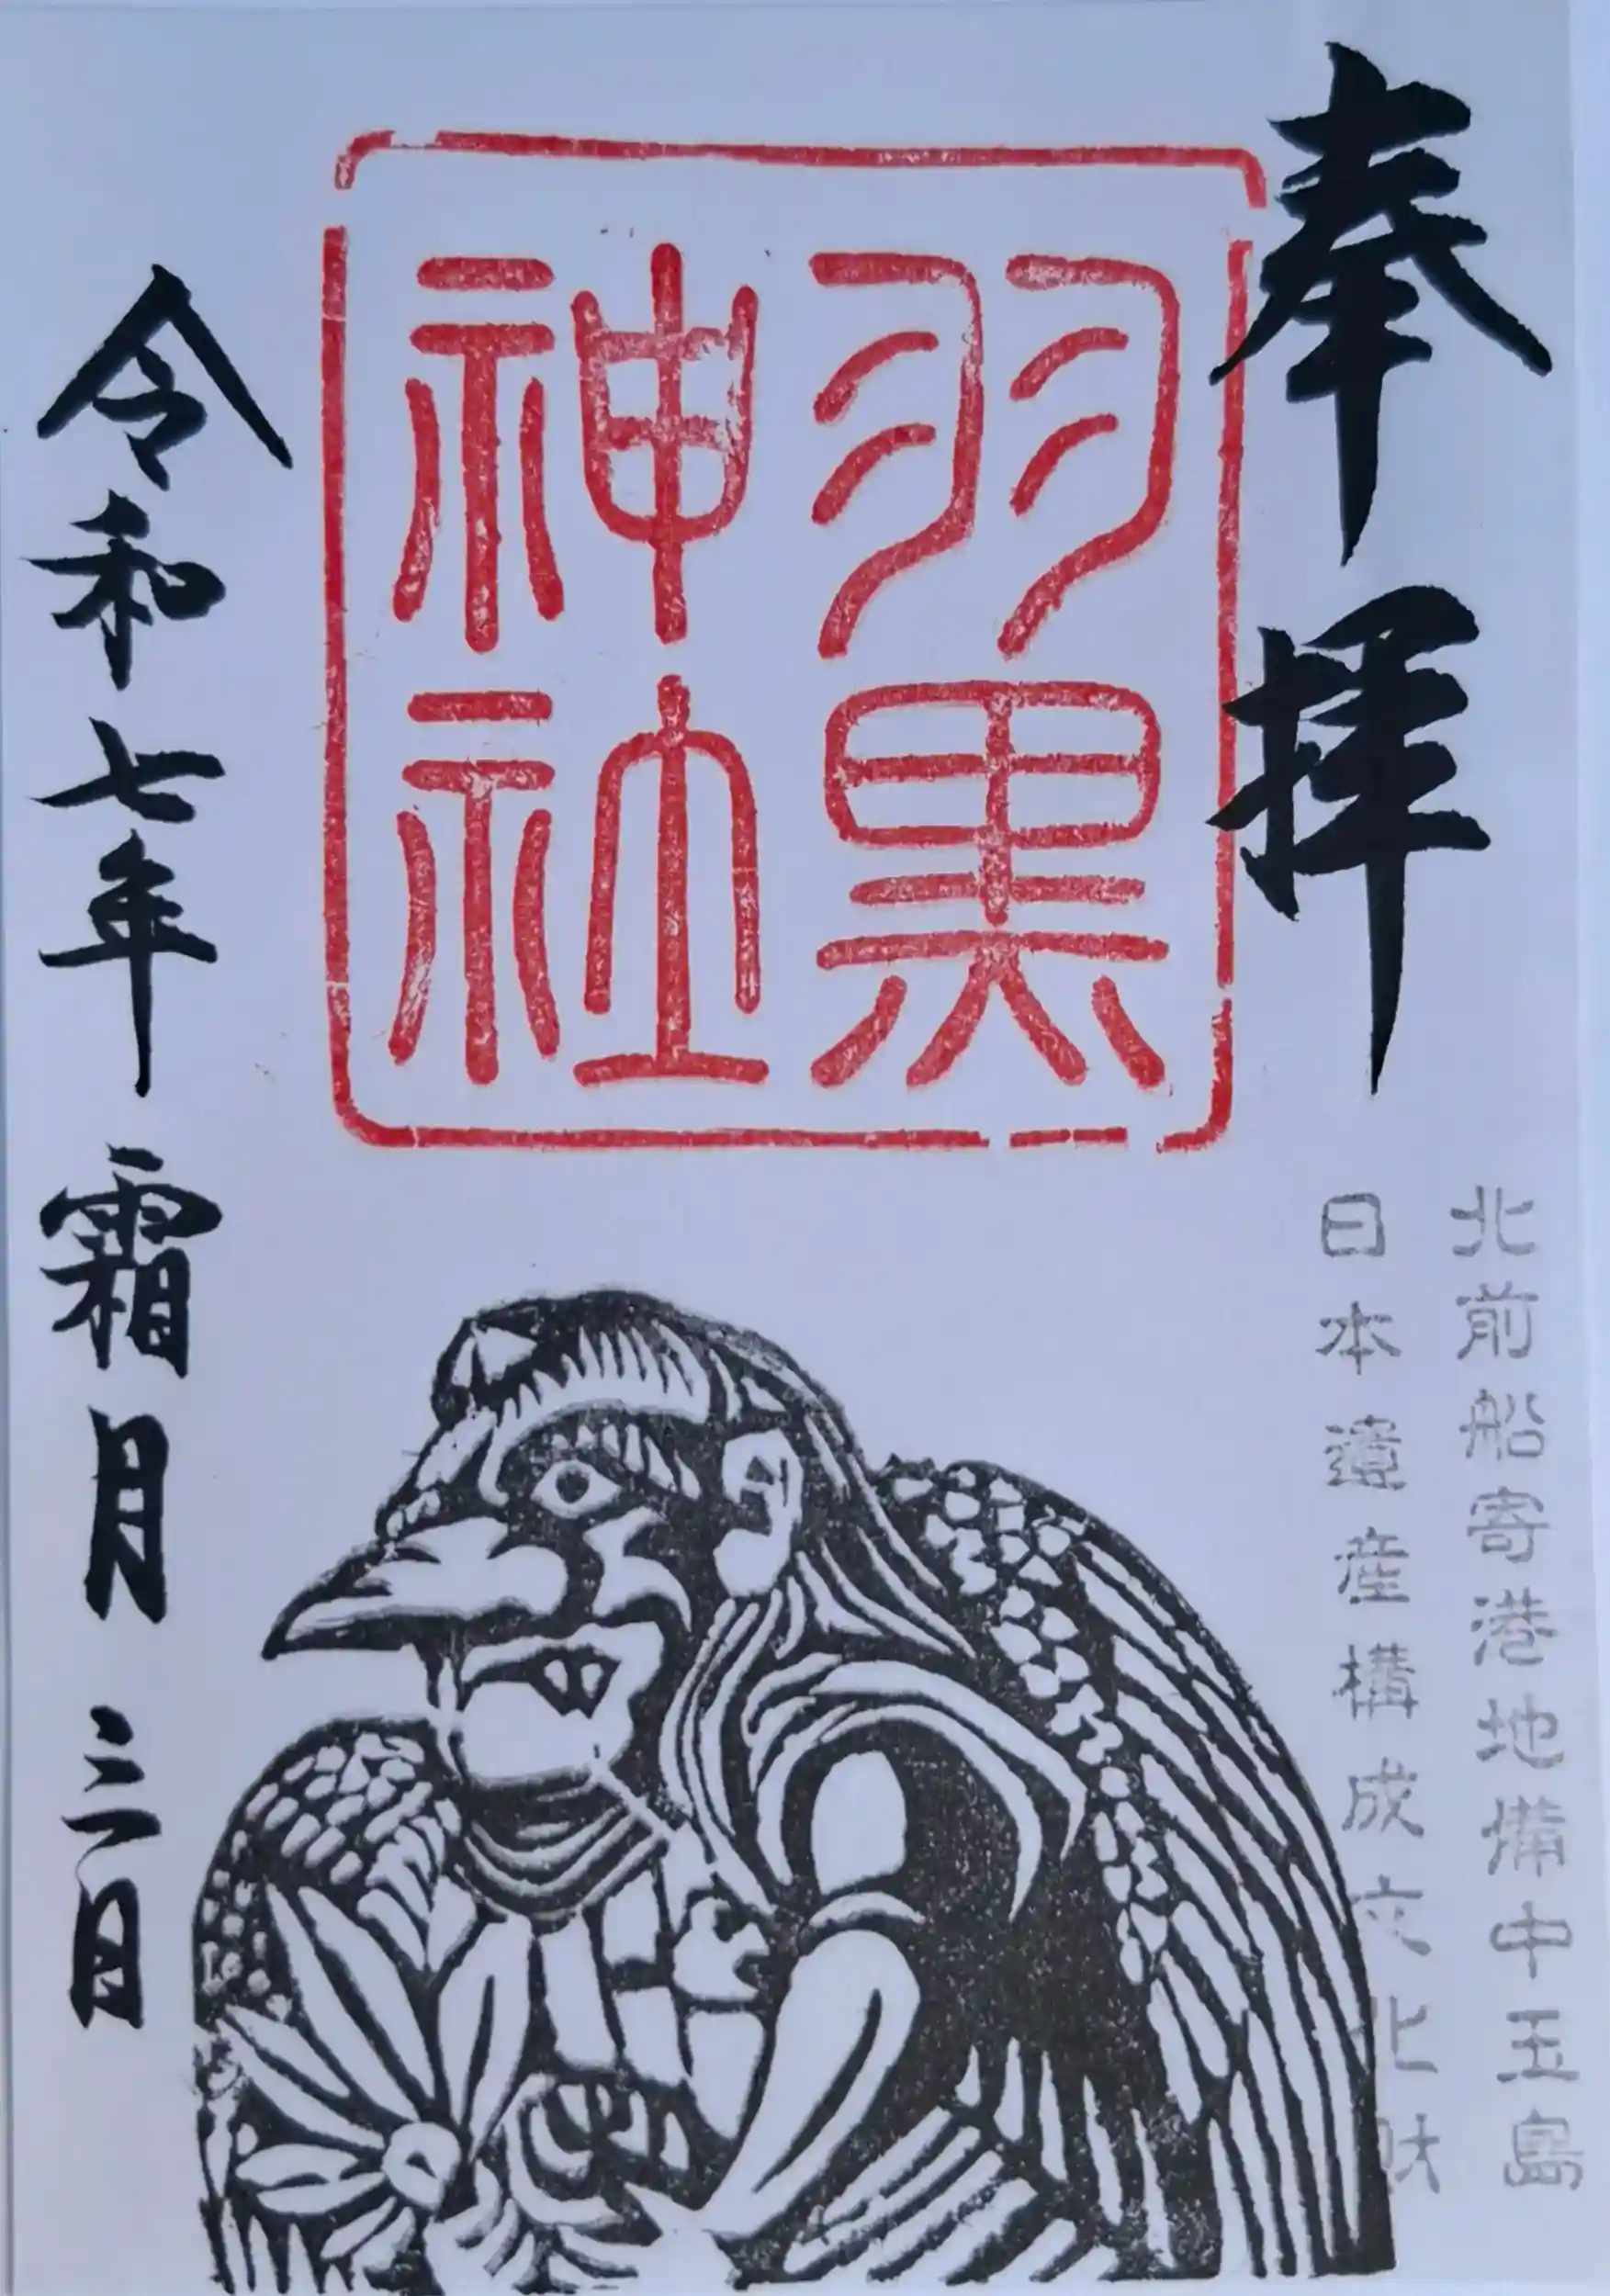 奉拝
北前船寄港地備中玉島
日本遺産構成文化財
羽黒
神社
令和七年霜月三日